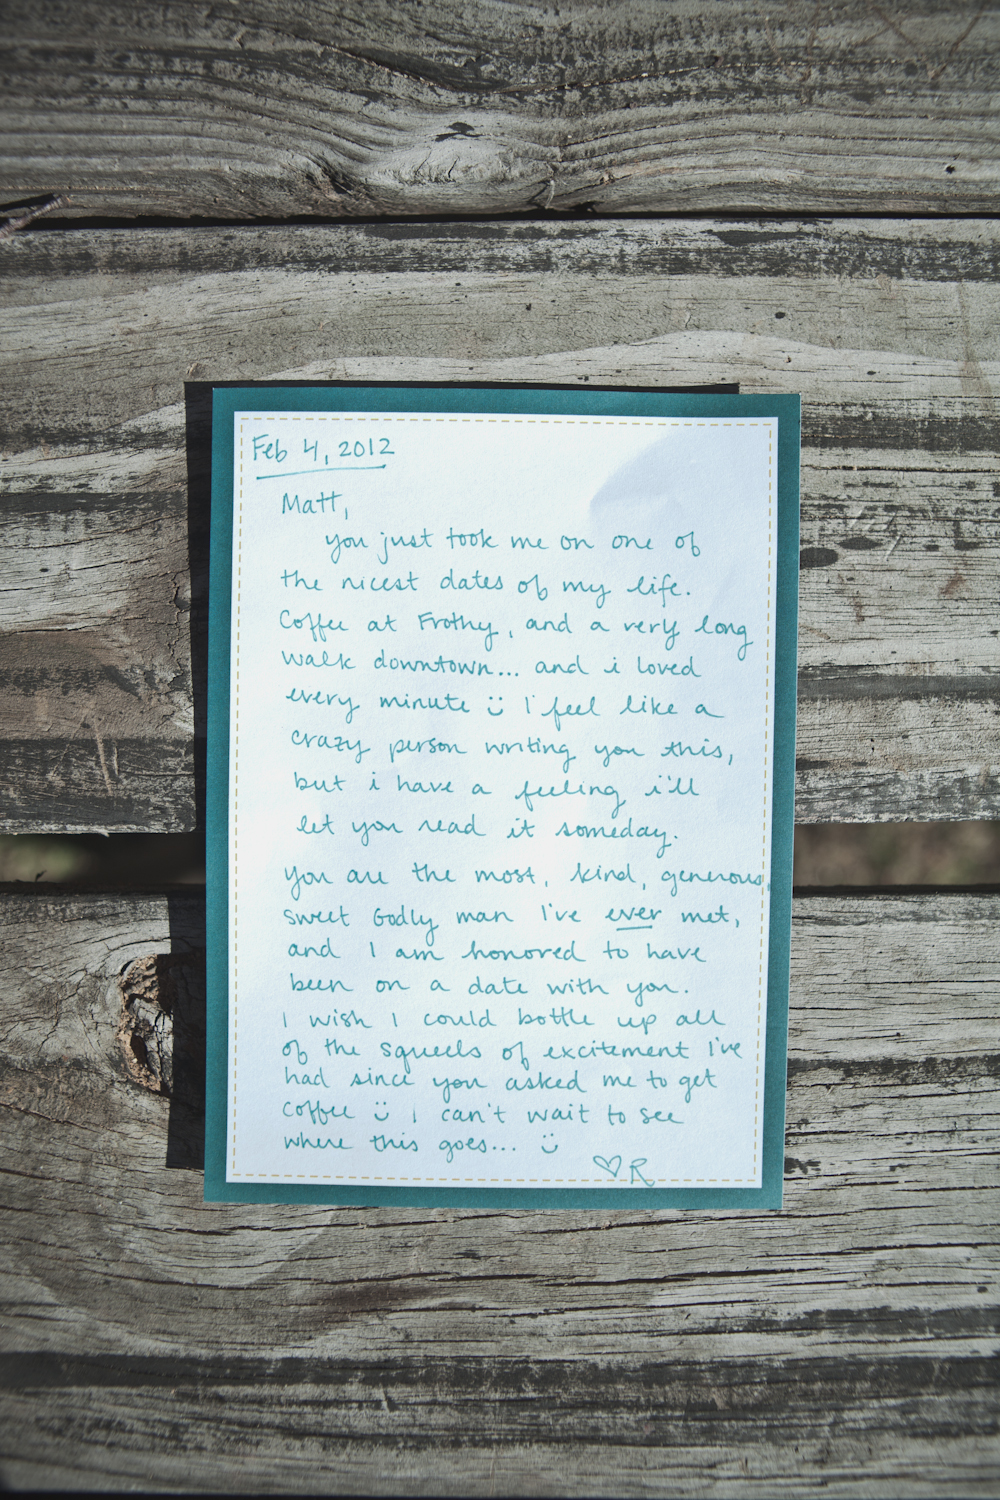 Feb 4, 2012
Matt,
you just took me on one of
the nicest dates of my life.
Coffee at Frothy, and a very long
walk downtown... and i loved
every minute :) I feel like a
crazy person writing you this,
but i have a feeling i'll
let you read it someday.
you are the most, kind, generous,
sweet Godly man I've ever met,
and I am honored to have
been on a date with you.
I wish I could bottle up all
of the squeels of excitement I've
had since you asked me to get
coffee :) I can't wait to see
where this goes... :)
♡R